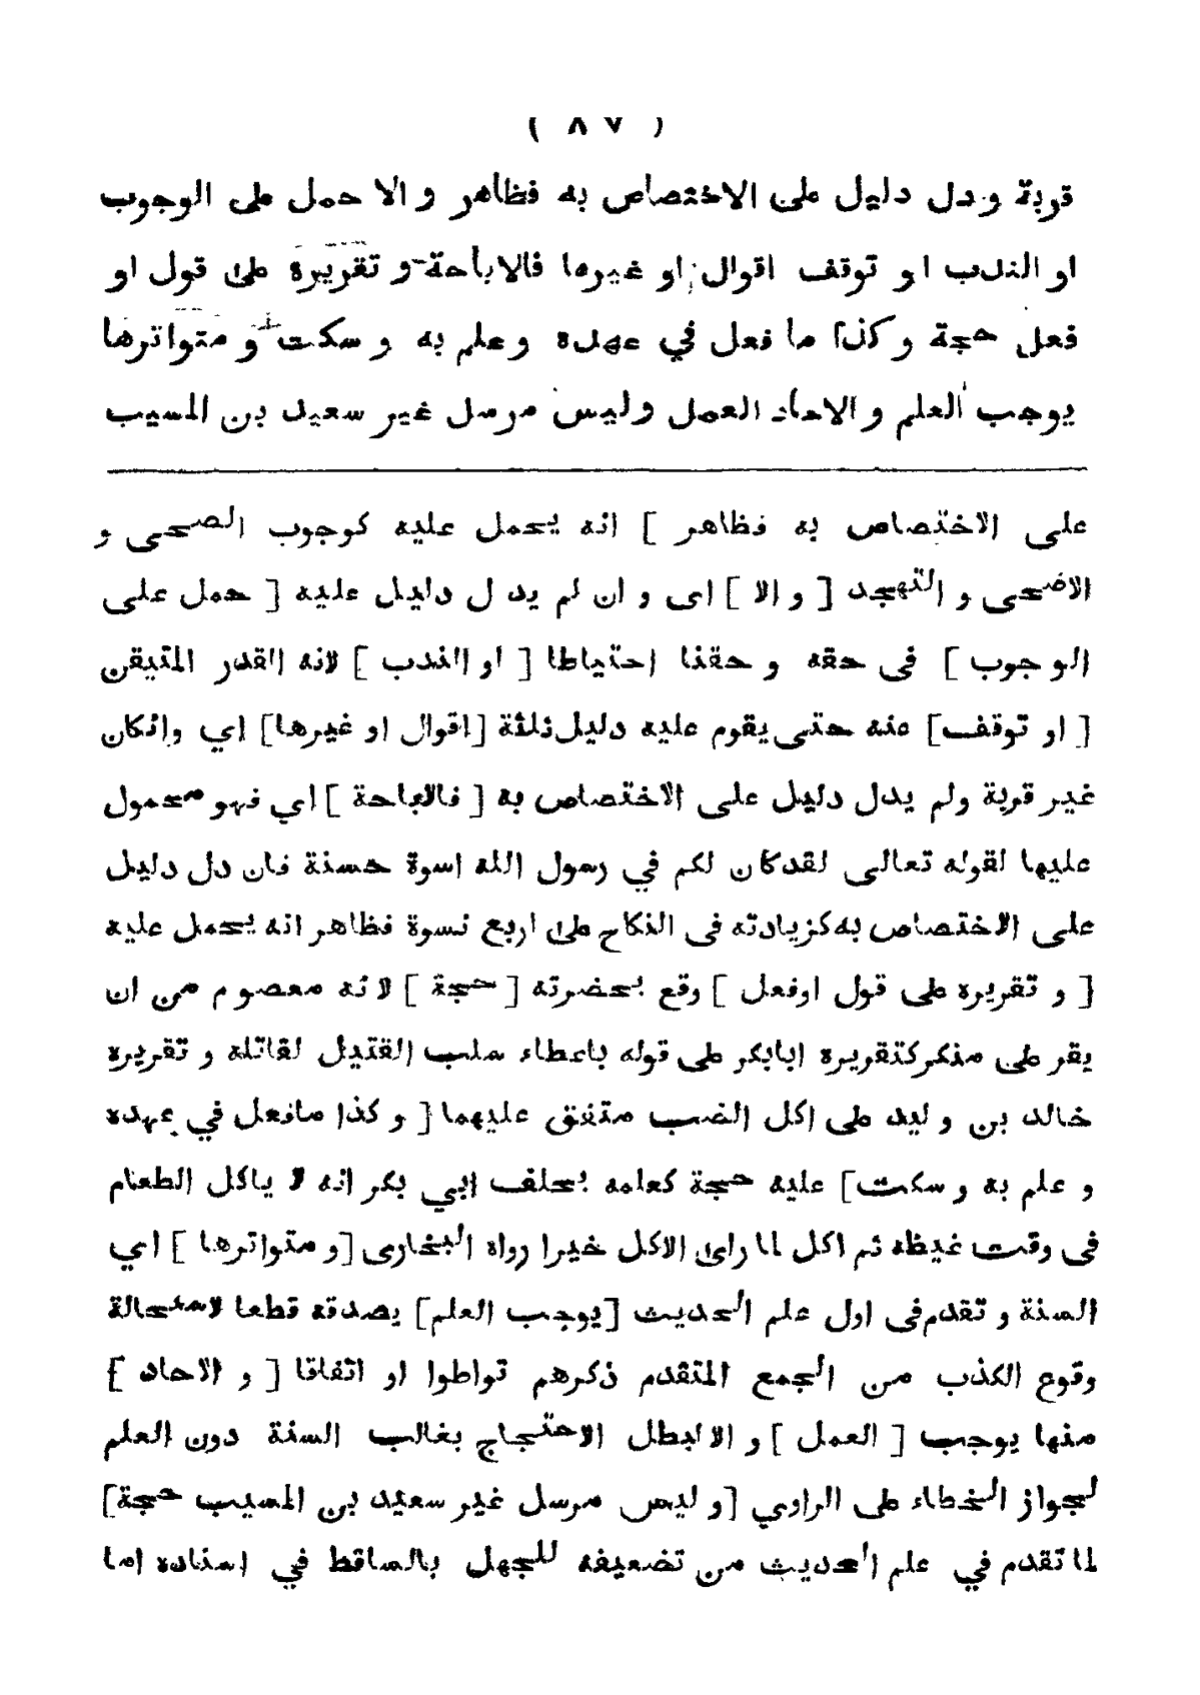 ( ٨٧ )
قربة و دل دليل على الاختصاص به فظاهر و الا حمل على الوجوب
او الندب او توقف اقوال او غيرها فالاباحة و تقريره على قول او
فعل حجة و كذا ما فعل في عهده و علم به و سكت و متواترها
يوجب العلم و الاحاد العمل و ليس مرسل غير سعيد بن المسيب
على الاختصاص به فظاهر ] انه يحمل عليه كوجوب الضحى و
الاضحى و التهجد [ و الا ] اى و ان لم يدل دليل عليه [ حمل على
الوجوب ] فى حقه و حقنا احتياطا [ او الندب ] لانه القدر المتيقن
[ او توقف ] عنه حتى يقوم عليه دليل ثلثة [اقوال او غيرها] اي وانكان
غير قربة ولم يدل دليل على الاختصاص به [ فالاباحة ] اي فهو محمول
عليها لقوله تعالى لقدكان لكم في رسول الله اسوة حسنة فان دل دليل
على الاختصاص به كزيادته فى النكاح على اربع نسوة فظاهر انه يحمل عليه
[ و تقريره على قول اوفعل ] وقع بحضرته [ حجة ] لانه معصوم من ان
يقر على منكر كتقريره ابابكر على قوله باعطاء سلب القتيل لقاتله و تقريره
خالد بن وليد على اكل الضب متفق عليهما [ و كذا مافعل في عهده
و علم به و سكت] عليه حجة كعلمه بحلف ابي بكر انه لا ياكل الطعام
فى وقت غيظه ثم اكل لما راى الاكل خيرا رواه البخارى [و متواترها ] اي
السنة و تقدم فى اول علم الحديث [يوجب العلم] بصدقه قطعا لاستحالة
وقوع الكذب من الجمع المتقدم ذكرهم تواطوا او اتفاقا [ و الاحاد ]
منها يوجب [ العمل ] و الا لبطل الاحتجاج بغالب السنة دون العلم
لجواز الخطاء على الراوي [و ليس مرسل غير سعيد بن المسيب حجة]
لما تقدم في علم الحديث من تضعيفه للجهل بالساقط في اسناده اما